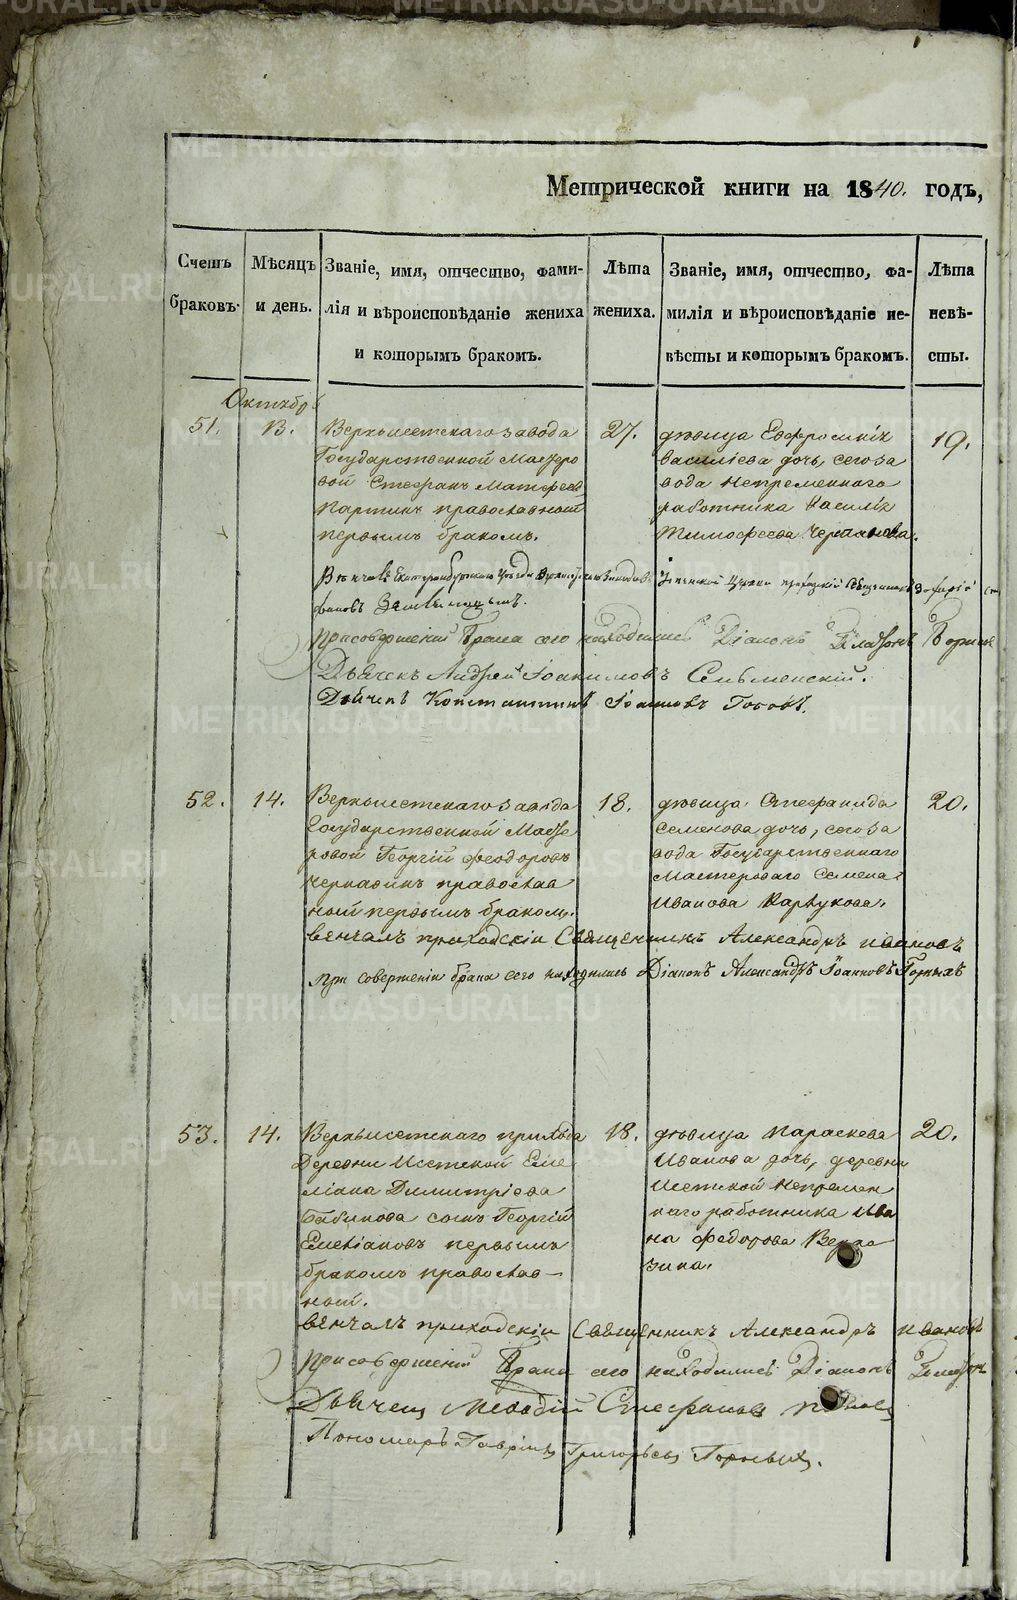 Метрической книги на 1840. годъ,
Счетъ браковъ.
Мѣсяцъ и день.
Званіе, имя, отчество, фами-
лія и вѣроисповѣданіе жениха
и которымъ бракомъ.
Лѣта жениха.
Званіе, имя, отчество, фа-
милія и вѣроисповѣданіе не-
вѣсты и которымъ бракомъ.
Лѣта невѣ-
сты.
Октябрь
51.
13.
Верхъисетскаго завода
Государственной Мастеро
вой Стефанъ Матфеевъ
Партинъ православный
первымъ бракомъ.
27.
дѣвица Евфросинія
Василіева дочь, сего за
вода непременнаго
работника Василія
Тимофеева Черепанова.
19.
Вѣнчалъ Екатеринбургскаго Уѣзда
Успенской Церкви приходскій Священникъ
При совершеніи Брака сего находились Діаконъ Платонъ
Дьячекъ Андрей Іоакимовъ
Дьячекъ Константинъ Іоанновъ
52.
14.
Верхъисетскаго завода
Государственной Масте
ровой Георгій Феодоровъ
Чернавинъ православ
ный первымъ бракомъ.
18.
дѣвица Стефанида
Семенова дочь, сего за
вода Государственнаго
Мастероваго Семена
Иванова Каркукова.
20.
вѣнчалъ приходскіи Священникъ Александръ Ивановъ
при совершеніи брака сего находились Діаконъ Александръ Іоанновъ Горныхъ
53.
14.
Верхъисетскаго прихода
Деревни Исетской Еме
ліана Димитріева
Бабинова сынъ Георгій
Емеліановъ первымъ
бракомъ православ-
ный.
18.
дѣвица Параскева
Иванова дочь, деревни
Исетской непремен
наго работника Ива
на Федорова
зина.
20.
вѣнчалъ приходскіи Священникъ Александръ Ивановъ
При совершеніи Брака сего находились Діаконъ
Дьячецъ Мефодій Стефановъ
Пономарь Гавріилъ Григорьевъ Горныхъ.
METRIKI.GASO-URAL.RU